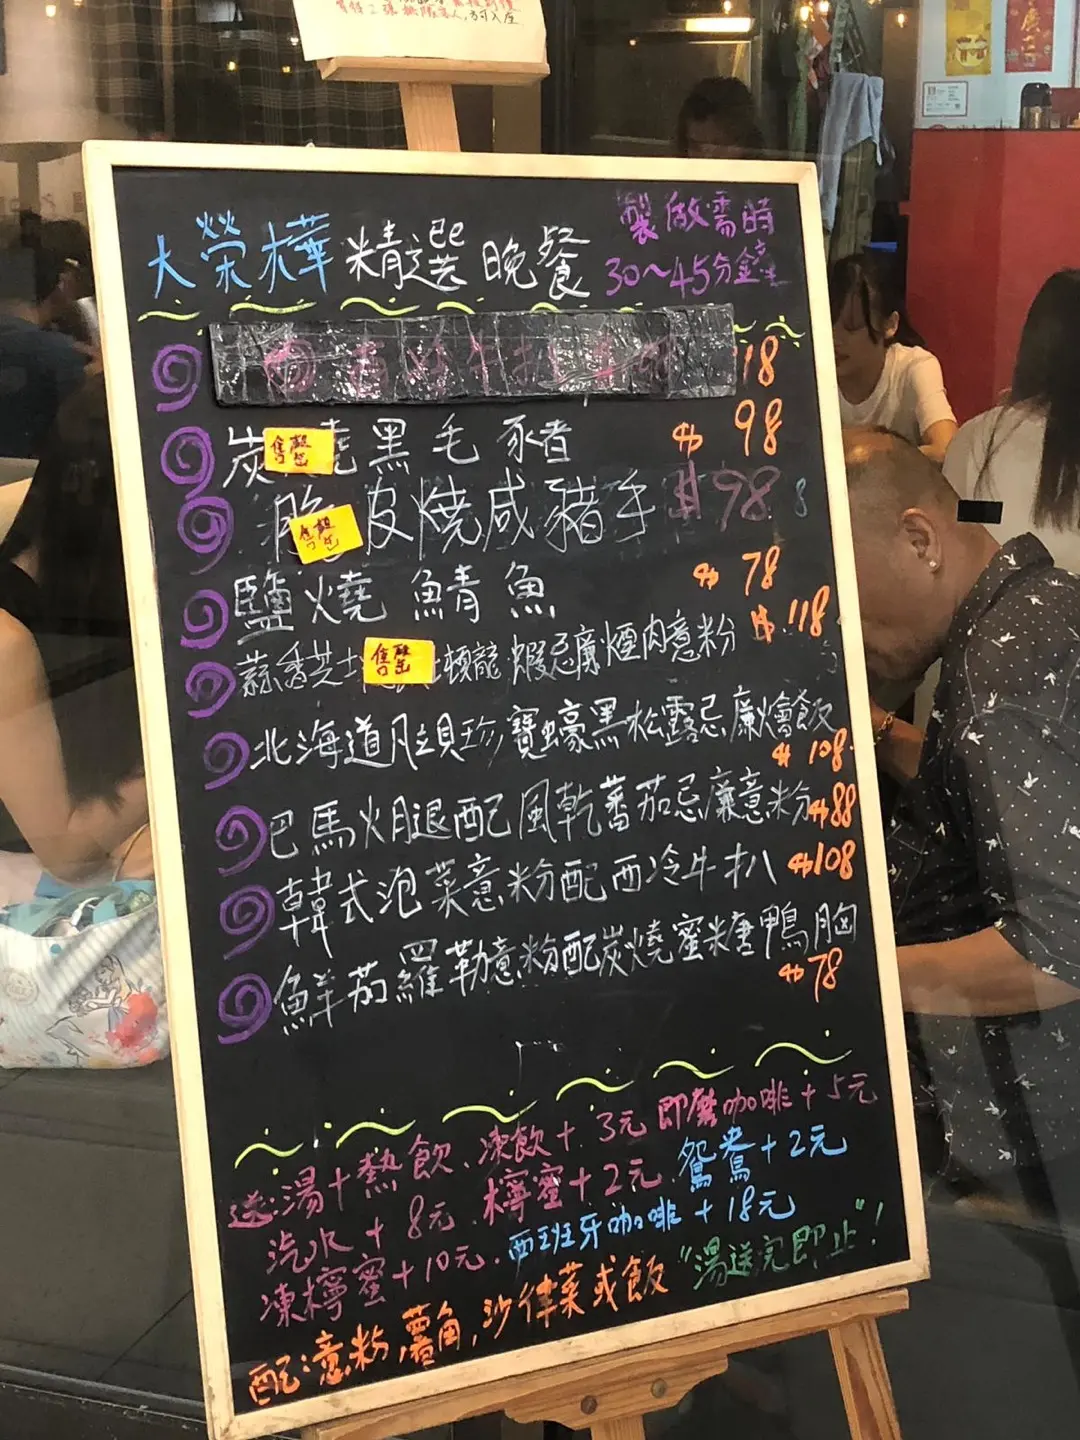 有任2張無限客人,方可入座
大榮樺 精選 晚餐
製做需時
30~45分鐘
118
售罄
炭燒黑毛豬 $98
售罄
脆皮燒咸豬手 $98
鹽燒鯖魚 $78
售罄
蒜香芝士 龍蝦忌廉煙肉意粉 $118
北海道月貝珍寶蠔黑松露忌廉燴飯
$108
巴馬火腿配風乾蕃茄忌廉意粉 $88
韓式泡菜意粉配西冷牛扒 $108
鮮茄羅勒意粉配炭燒蜜糖鴨胸
$78
送:湯+熱飲、凍飲+3元 即磨咖啡+5元
汽水+8元.檸蜜+2元.鴛鴦+2元
凍檸蜜+10元.西班牙咖啡+18元
配:意粉,薯角,沙律菜或飯 "湯送完即止"!